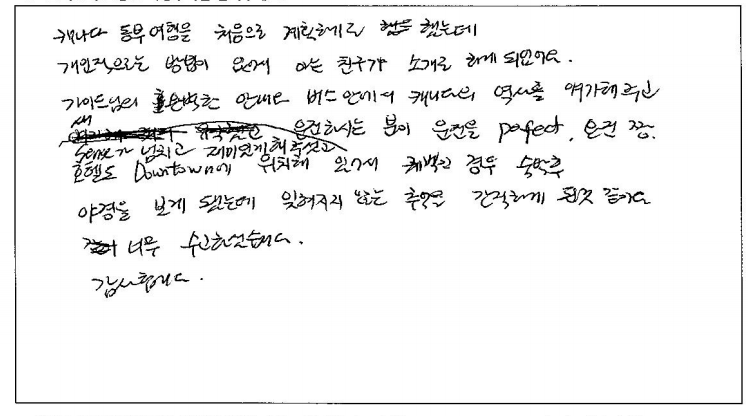 캐나다 동부여행을 처음으로 계획하게로 했는데
개인적으로는 방법이 없어서 아는 친구가 소개로 하게 되었어요.
가이드님의 훌륭한 안내와 버스 안에서 캐나다의 역사를 얘기해주신
운전하시는 분이 운전을 perfect, 운전 짱.
Sense가 넘치고 재미있게 해주셨고
호텔도 Downtown에 위치해 있어서 퀘벡의 경우 숙박후
야경을 보게 됐는데 잊혀지지 않는 추억을 간직하게 된것 같아요
너무 수고하셨습니다.
감사합니다.